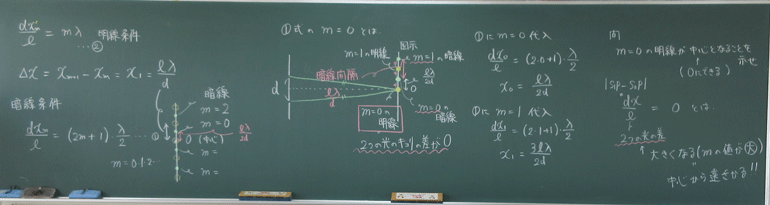 dxm/l = mλ 明線条件
②
Δx = xm+1 - xm = x1 = lλ/d
暗線条件
dxm/l = (2m+1) λ/2 … ①
m=0.1.2…
暗線
m=2
m=0
0 (中心)
lλ/2d
m=
m=
①式の m=0 とは.
図示
m=1の明線
m=1の暗線
暗線間隔
lλ/d
d
lλ/2d
0
m=0の明線
m=0の暗線
2つの光のキョリの差が0
①に m=0 代入
dx0/l = (2·0+1)·λ/2
x0 = lλ/2d
①に m=1 代入
dx1/l = (2·1+1)·λ/2
x1 = 3lλ/2d
問
m=0の明線が中心となることを示せ
(0にできる)
|S1P-S2P|
dx/l = 0 とは…
2つの光の差
大きくなる(mの値が大)
中心から遠ざかる"